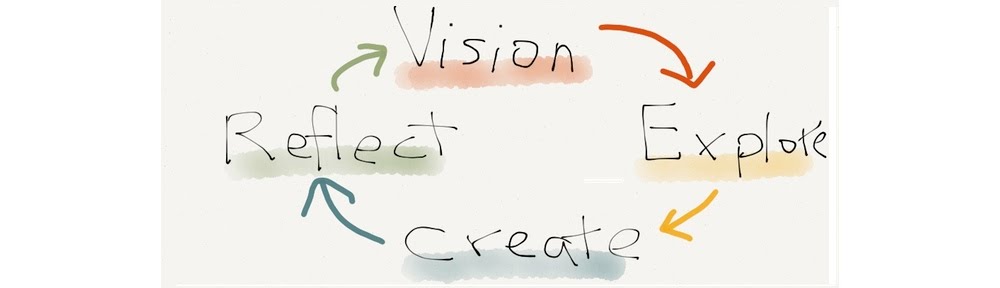 Vision
Explore
Create
Reflect